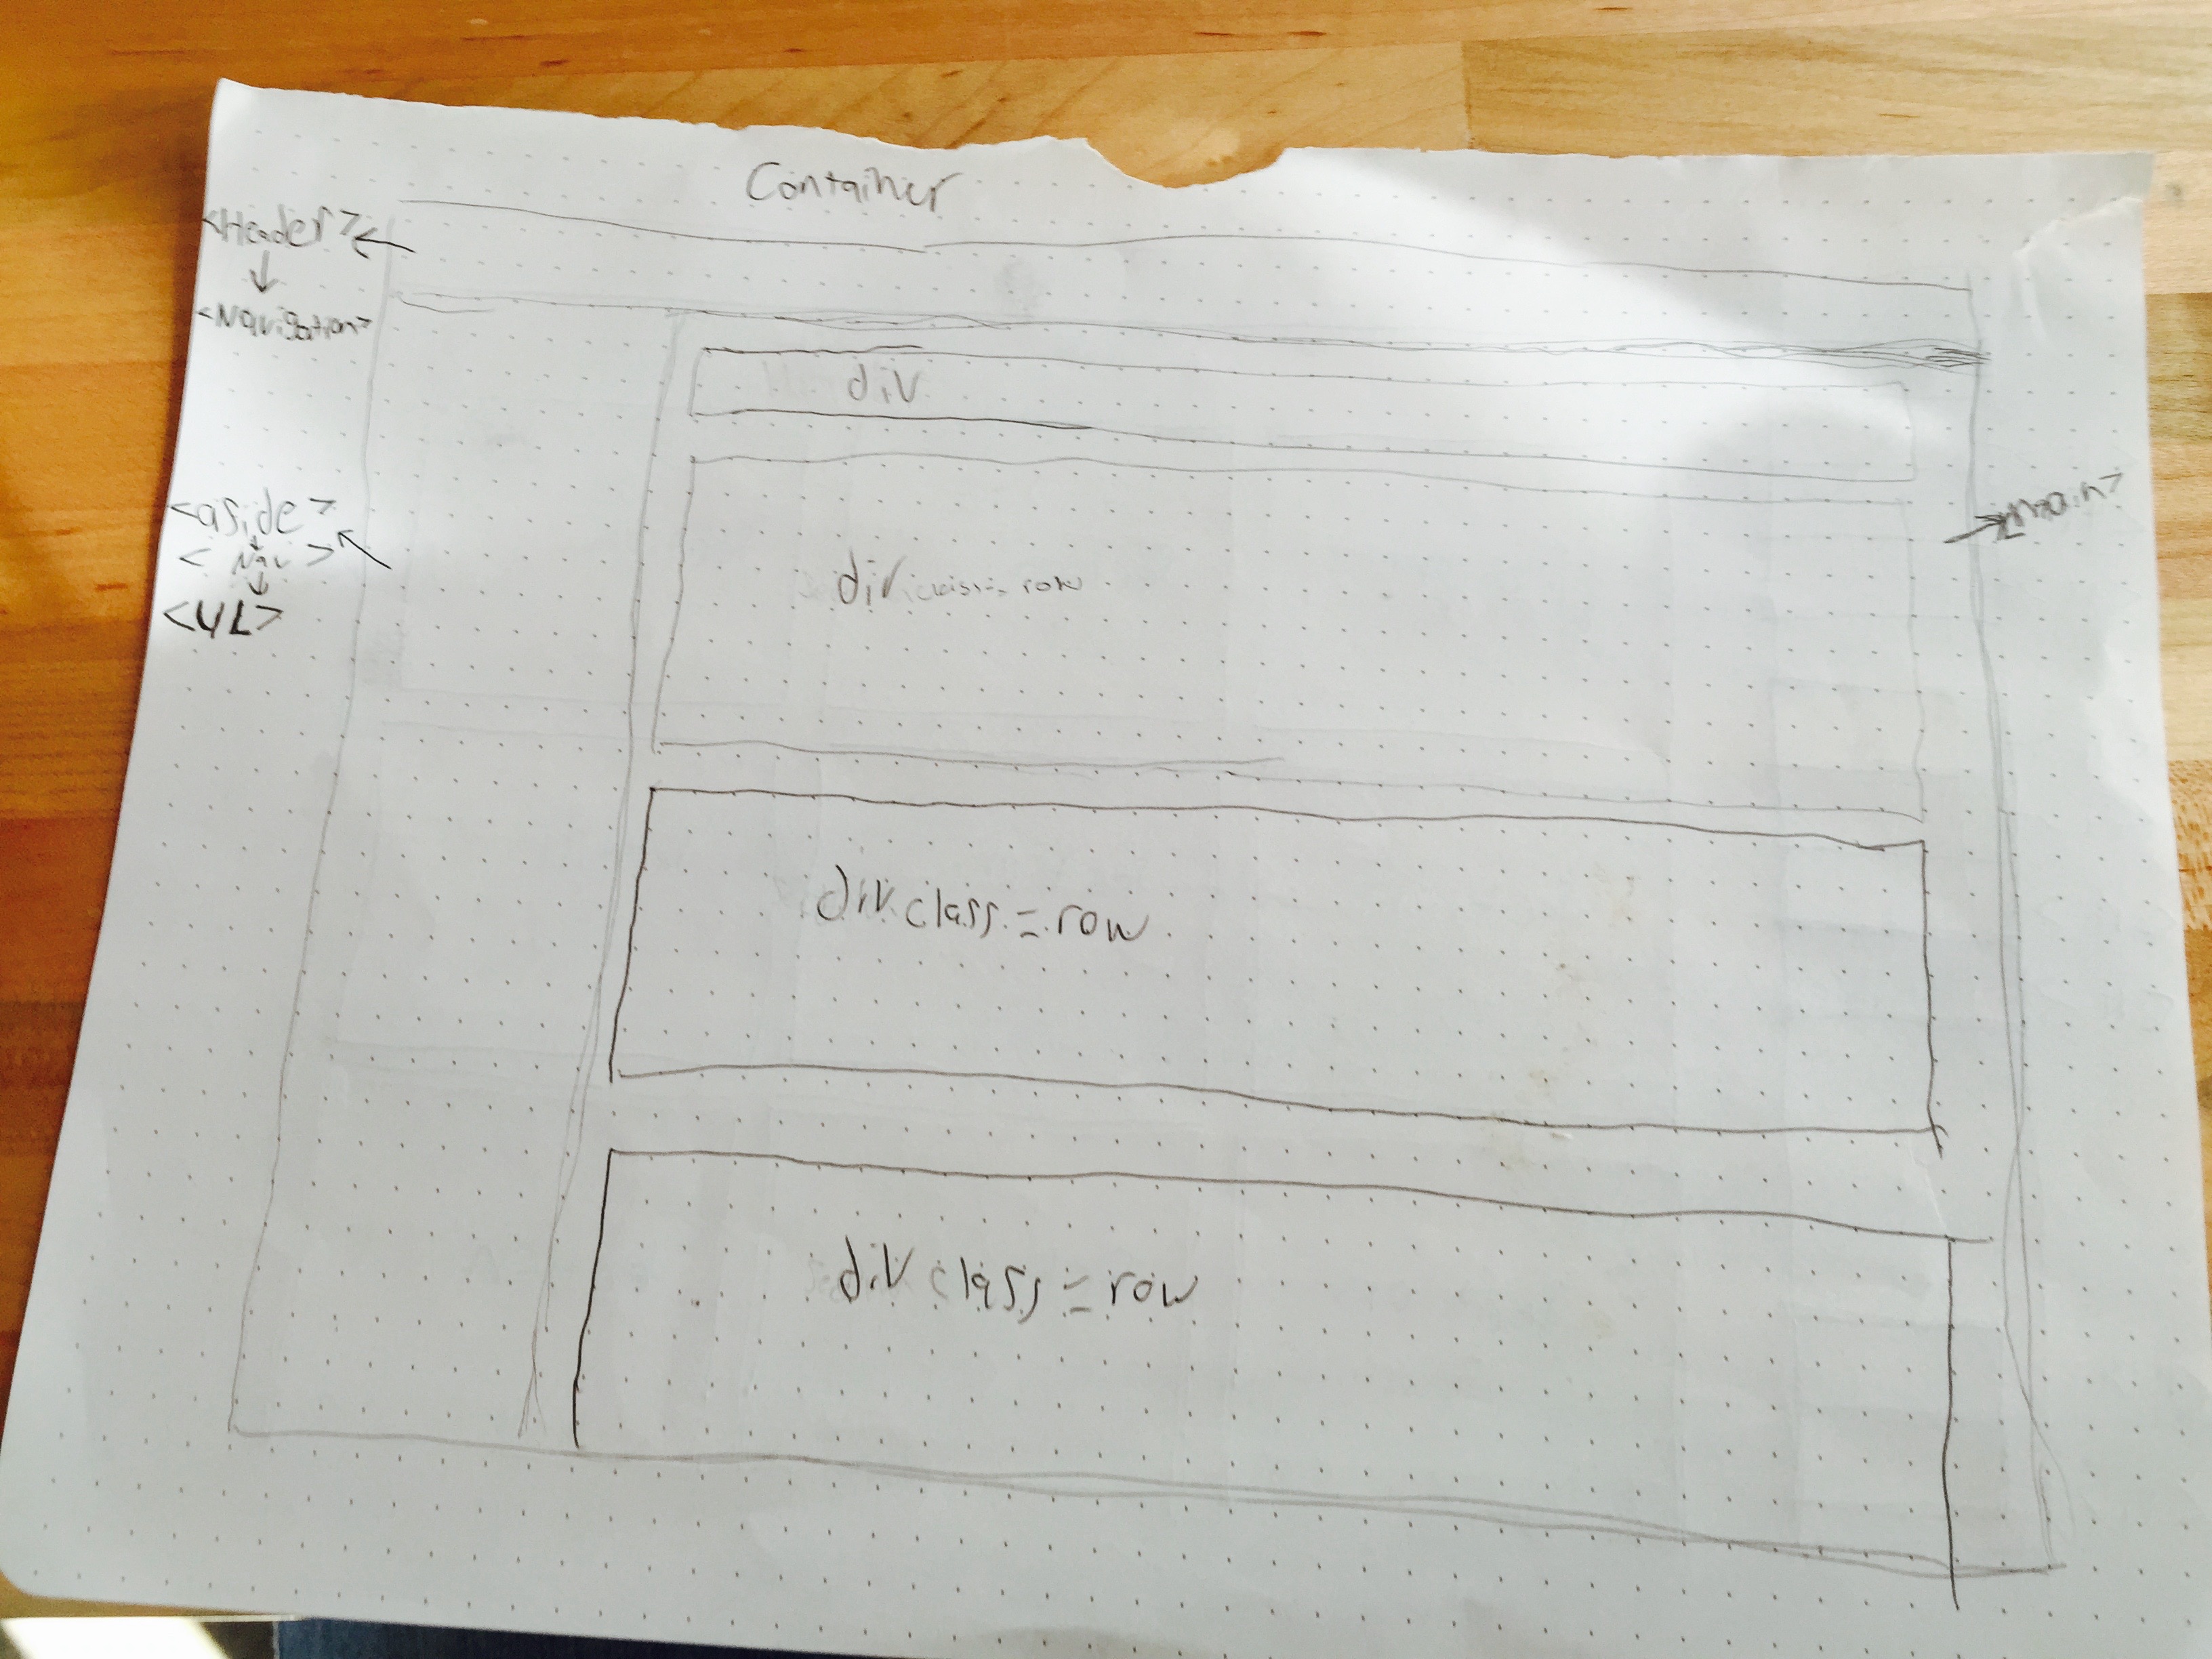 Container
<Header>
<Navigation>
div
<aside>
< Nav >
<UL>
<main>
div class = row
div class = row
div class = row